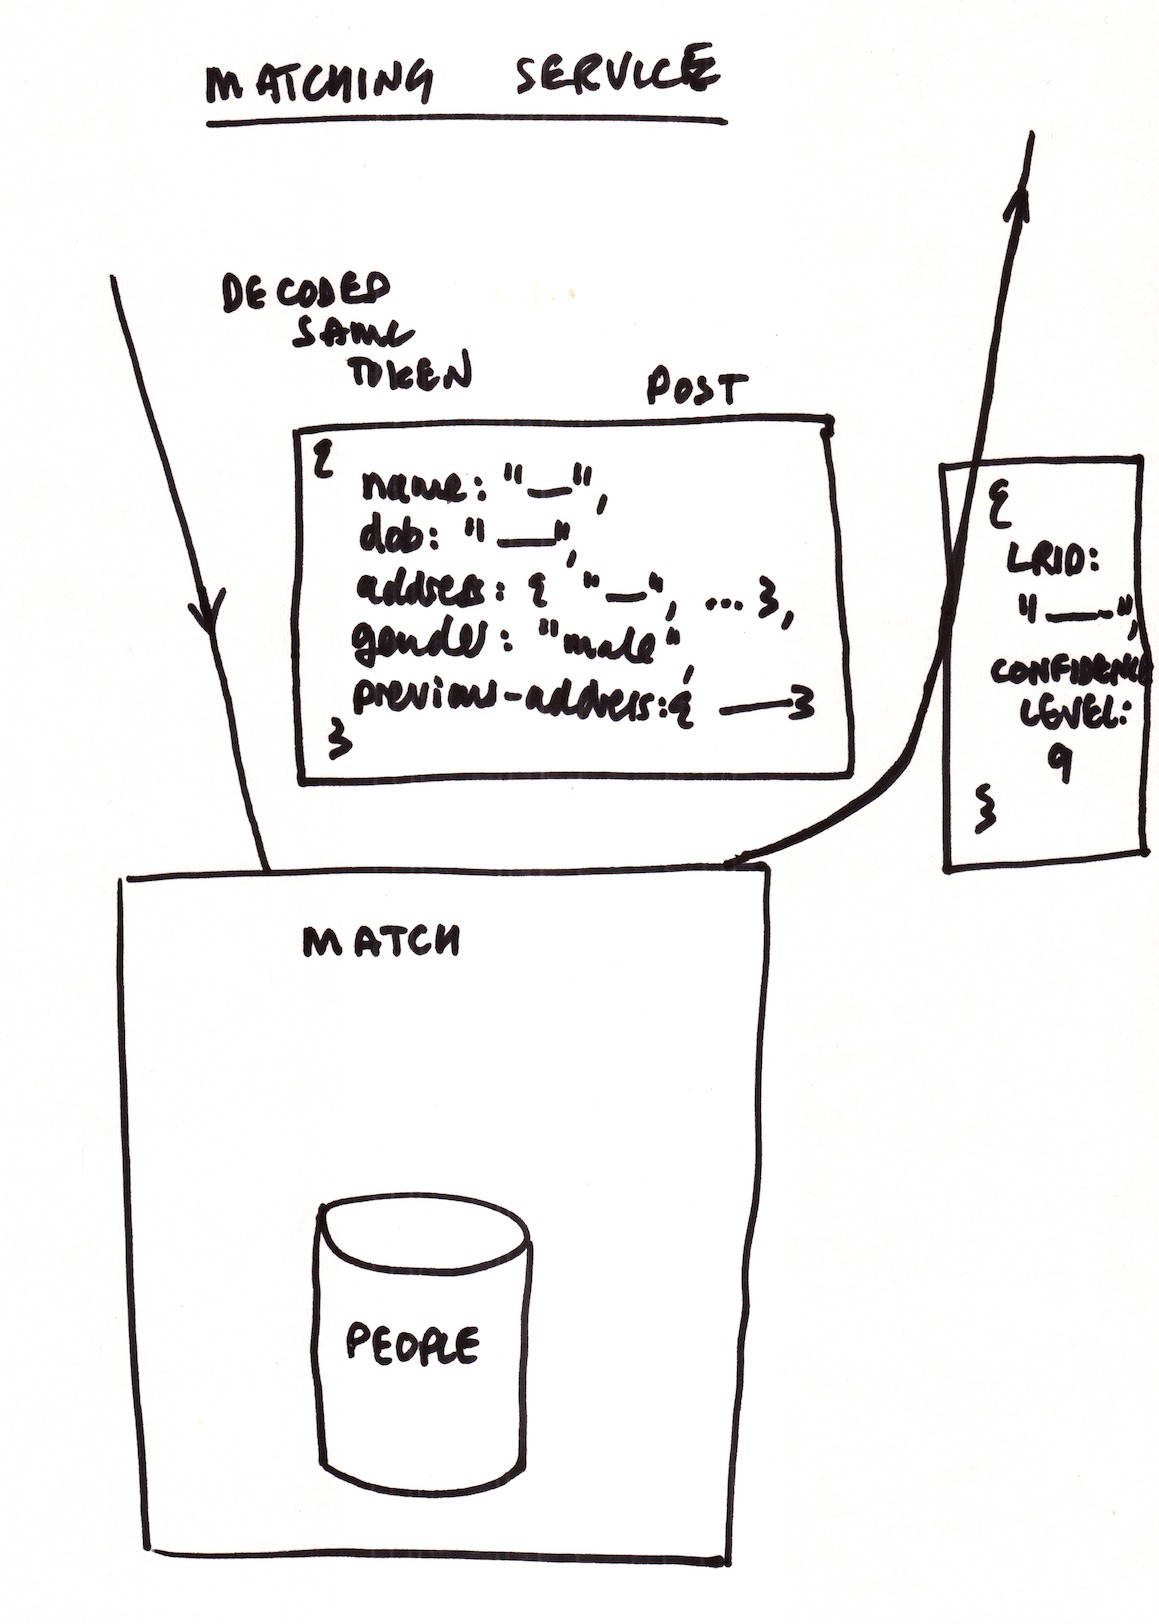 MATCHING SERVICE
DECODED
SAML
TOKEN
POST
{
name: "—",
dob: "—",
address: { "—", ... },
gender: "male",
previous-address:{ — }
}
{
LRID:
"—",
CONFIDENCE
LEVEL:
9
}
MATCH
PEOPLE